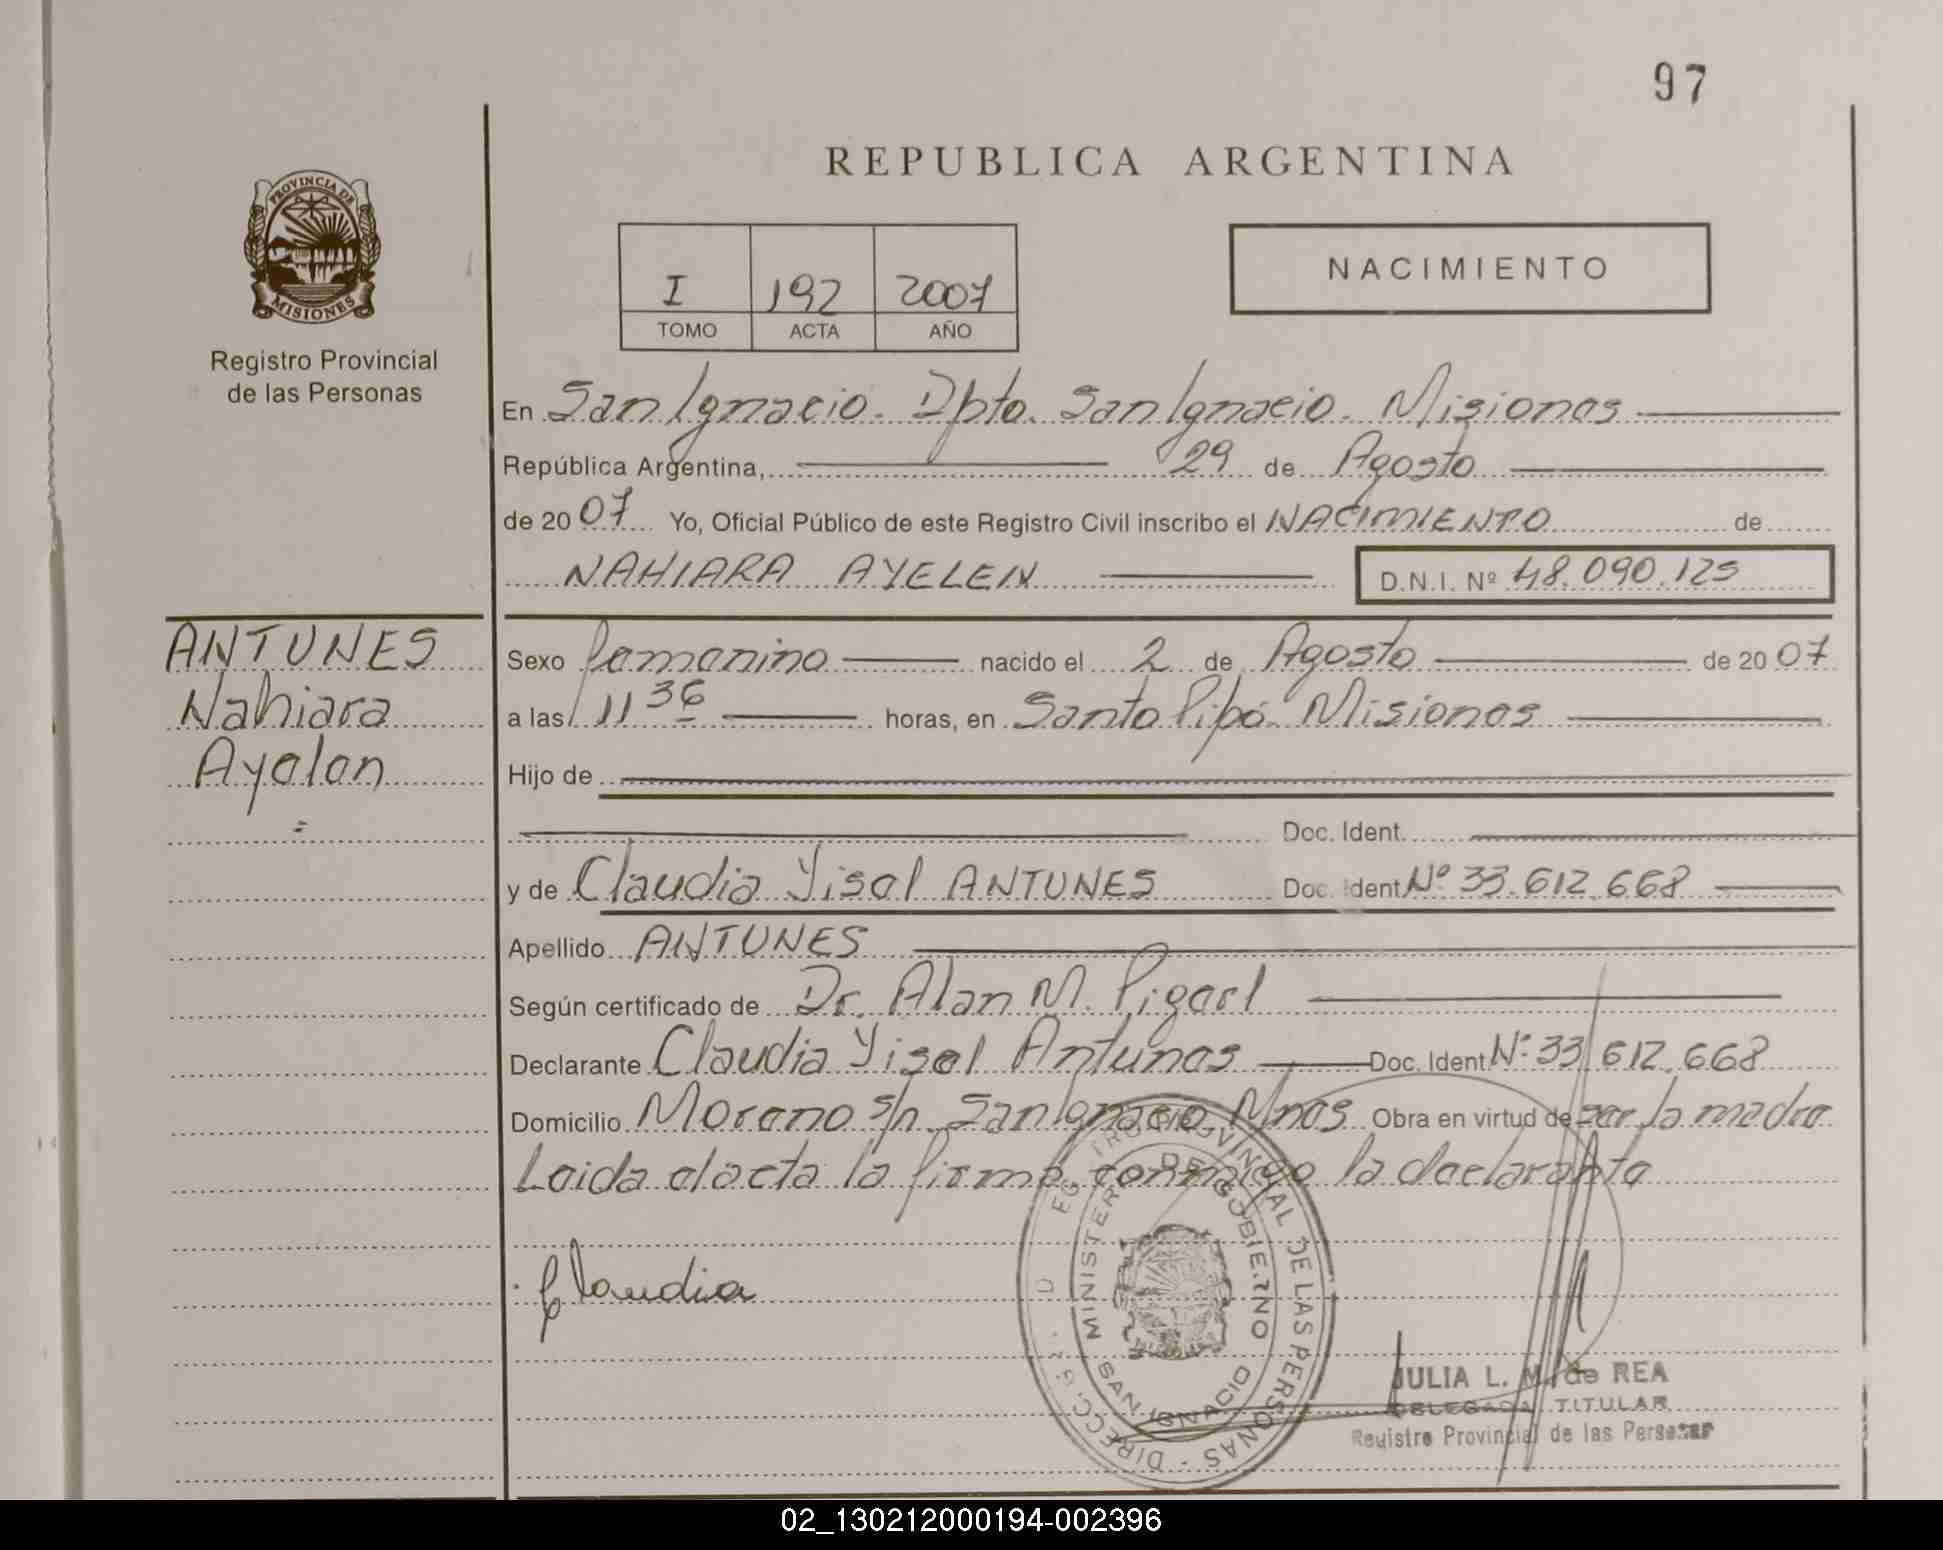 97
REPUBLICA ARGENTINA
PROVINCIA DE
MISIONES
Registro Provincial
de las Personas
I 192 2007
TOMO ACTA AÑO
NACIMIENTO
En San Ignacio. Dpto. San Ignacio. Misiones
República Argentina, 29 de Agosto
de 20 07 Yo, Oficial Público de este Registro Civil inscribo el NACIMIENTO de
NAHIARA AYELEN D.N.I. Nº 48.090.125
ANTUNES
Nahiara
Ayelen
Sexo femenino nacido el 2 de Agosto de 20 07
a las 11 36 horas, en Santo Pipó. Misiones
Hijo de
Doc. Ident.
y de Claudia Yisel ANTUNES Doc. Ident Nº 33.612.668
Apellido ANTUNES
Según certificado de Dr. Alan M.
Declarante Claudia Yisel Antunes Doc. Ident Nº 33.612.668
Domicilio Moreno s/n. San Ignacio Mnes Obra en virtud de ser la madre
Leida el acta la firma conmigo la declaranta
Claudia
REGISTRO PROVINCIAL DE LAS PERSONAS - DIRECC
MINISTERIO DE GOBIERNO
SAN IGNACIO
JULIA L. M. de REA
DELEGADA TITULAR
Registro Provincial de las Personas
02_130212000194-002396